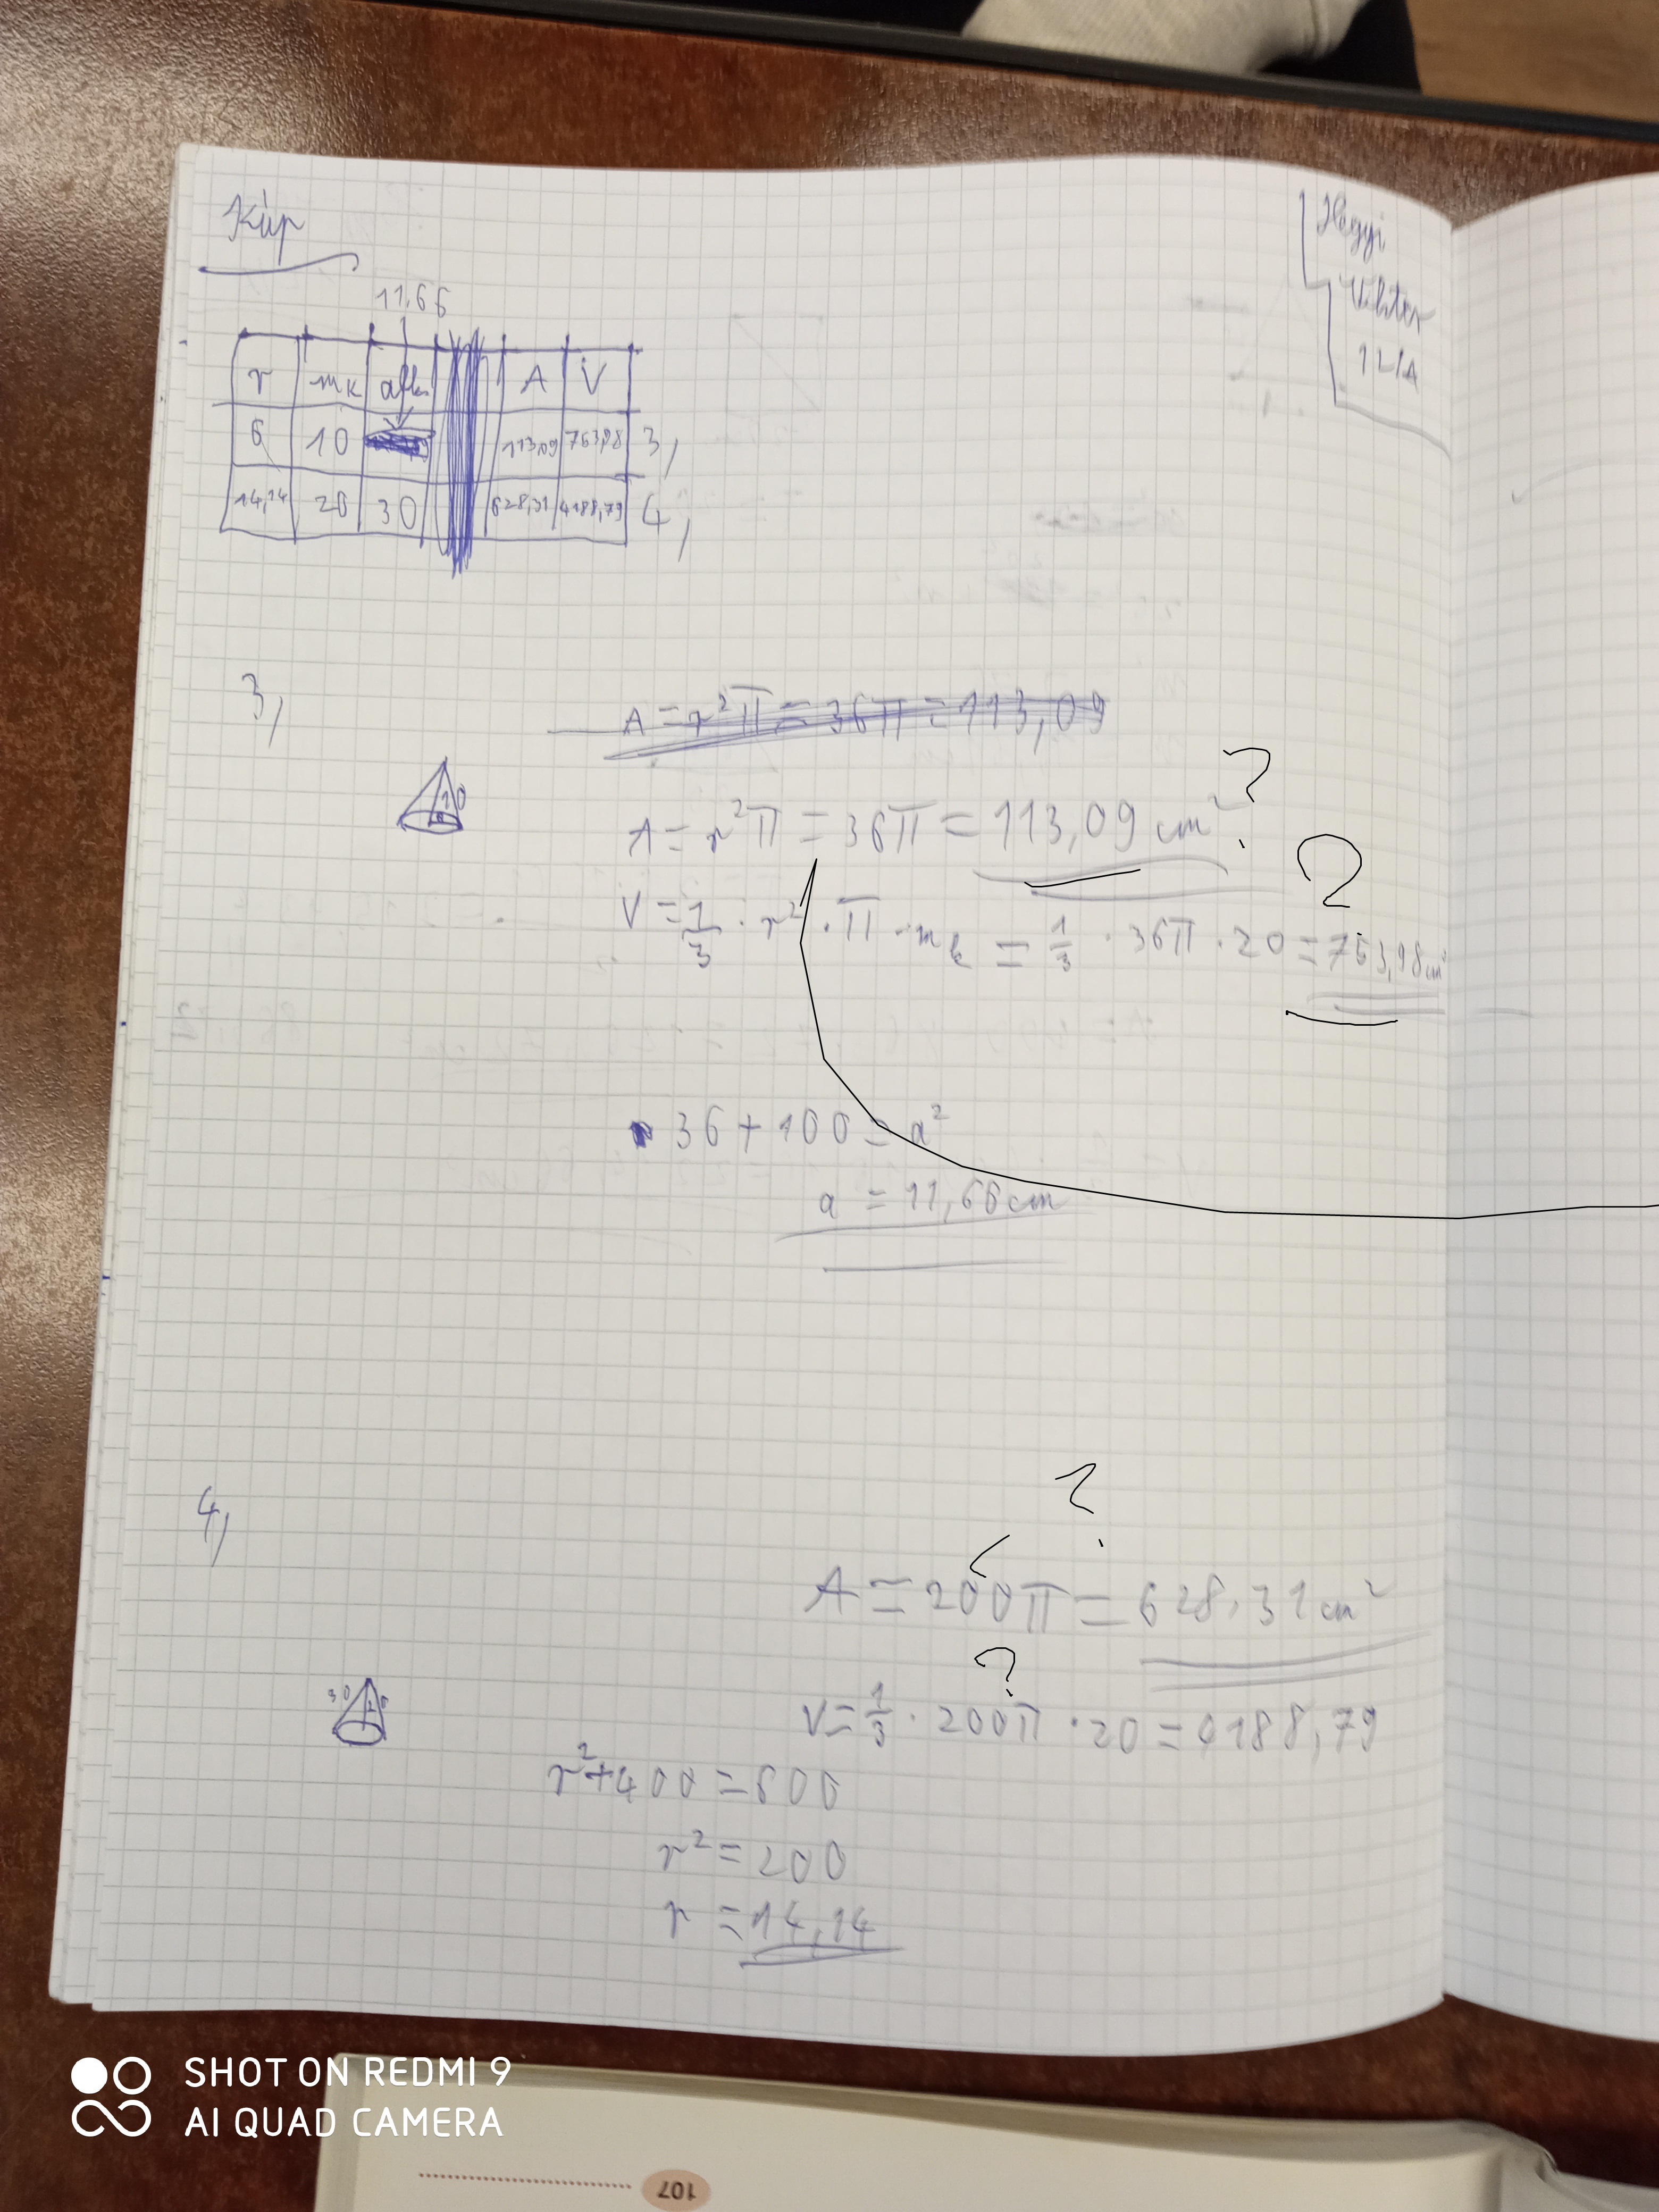 Kúp
Hegyi
Viktor
12/A
11,66
r mk alk A V
6 10 113,09 753,98 3,
14,14 20 30 628,31 4188,79 4,
3,
A = r²π = 36π = 113,09
10
?
A = r²π = 36π = 113,09 cm²
?
V = 1/3 · r² · π · mk = 1/3 · 36π · 20 = 753,98 cm³
36 + 100 = a²
a = 11,66 cm
4,
?
A = 200π = 628,31 cm²
?
30 20
V = 1/3 · 200π · 20 = 4188,79
r² + 400 = 600
r² = 200
r = 14,14
SHOT ON REDMI 9
AI QUAD CAMERA
107